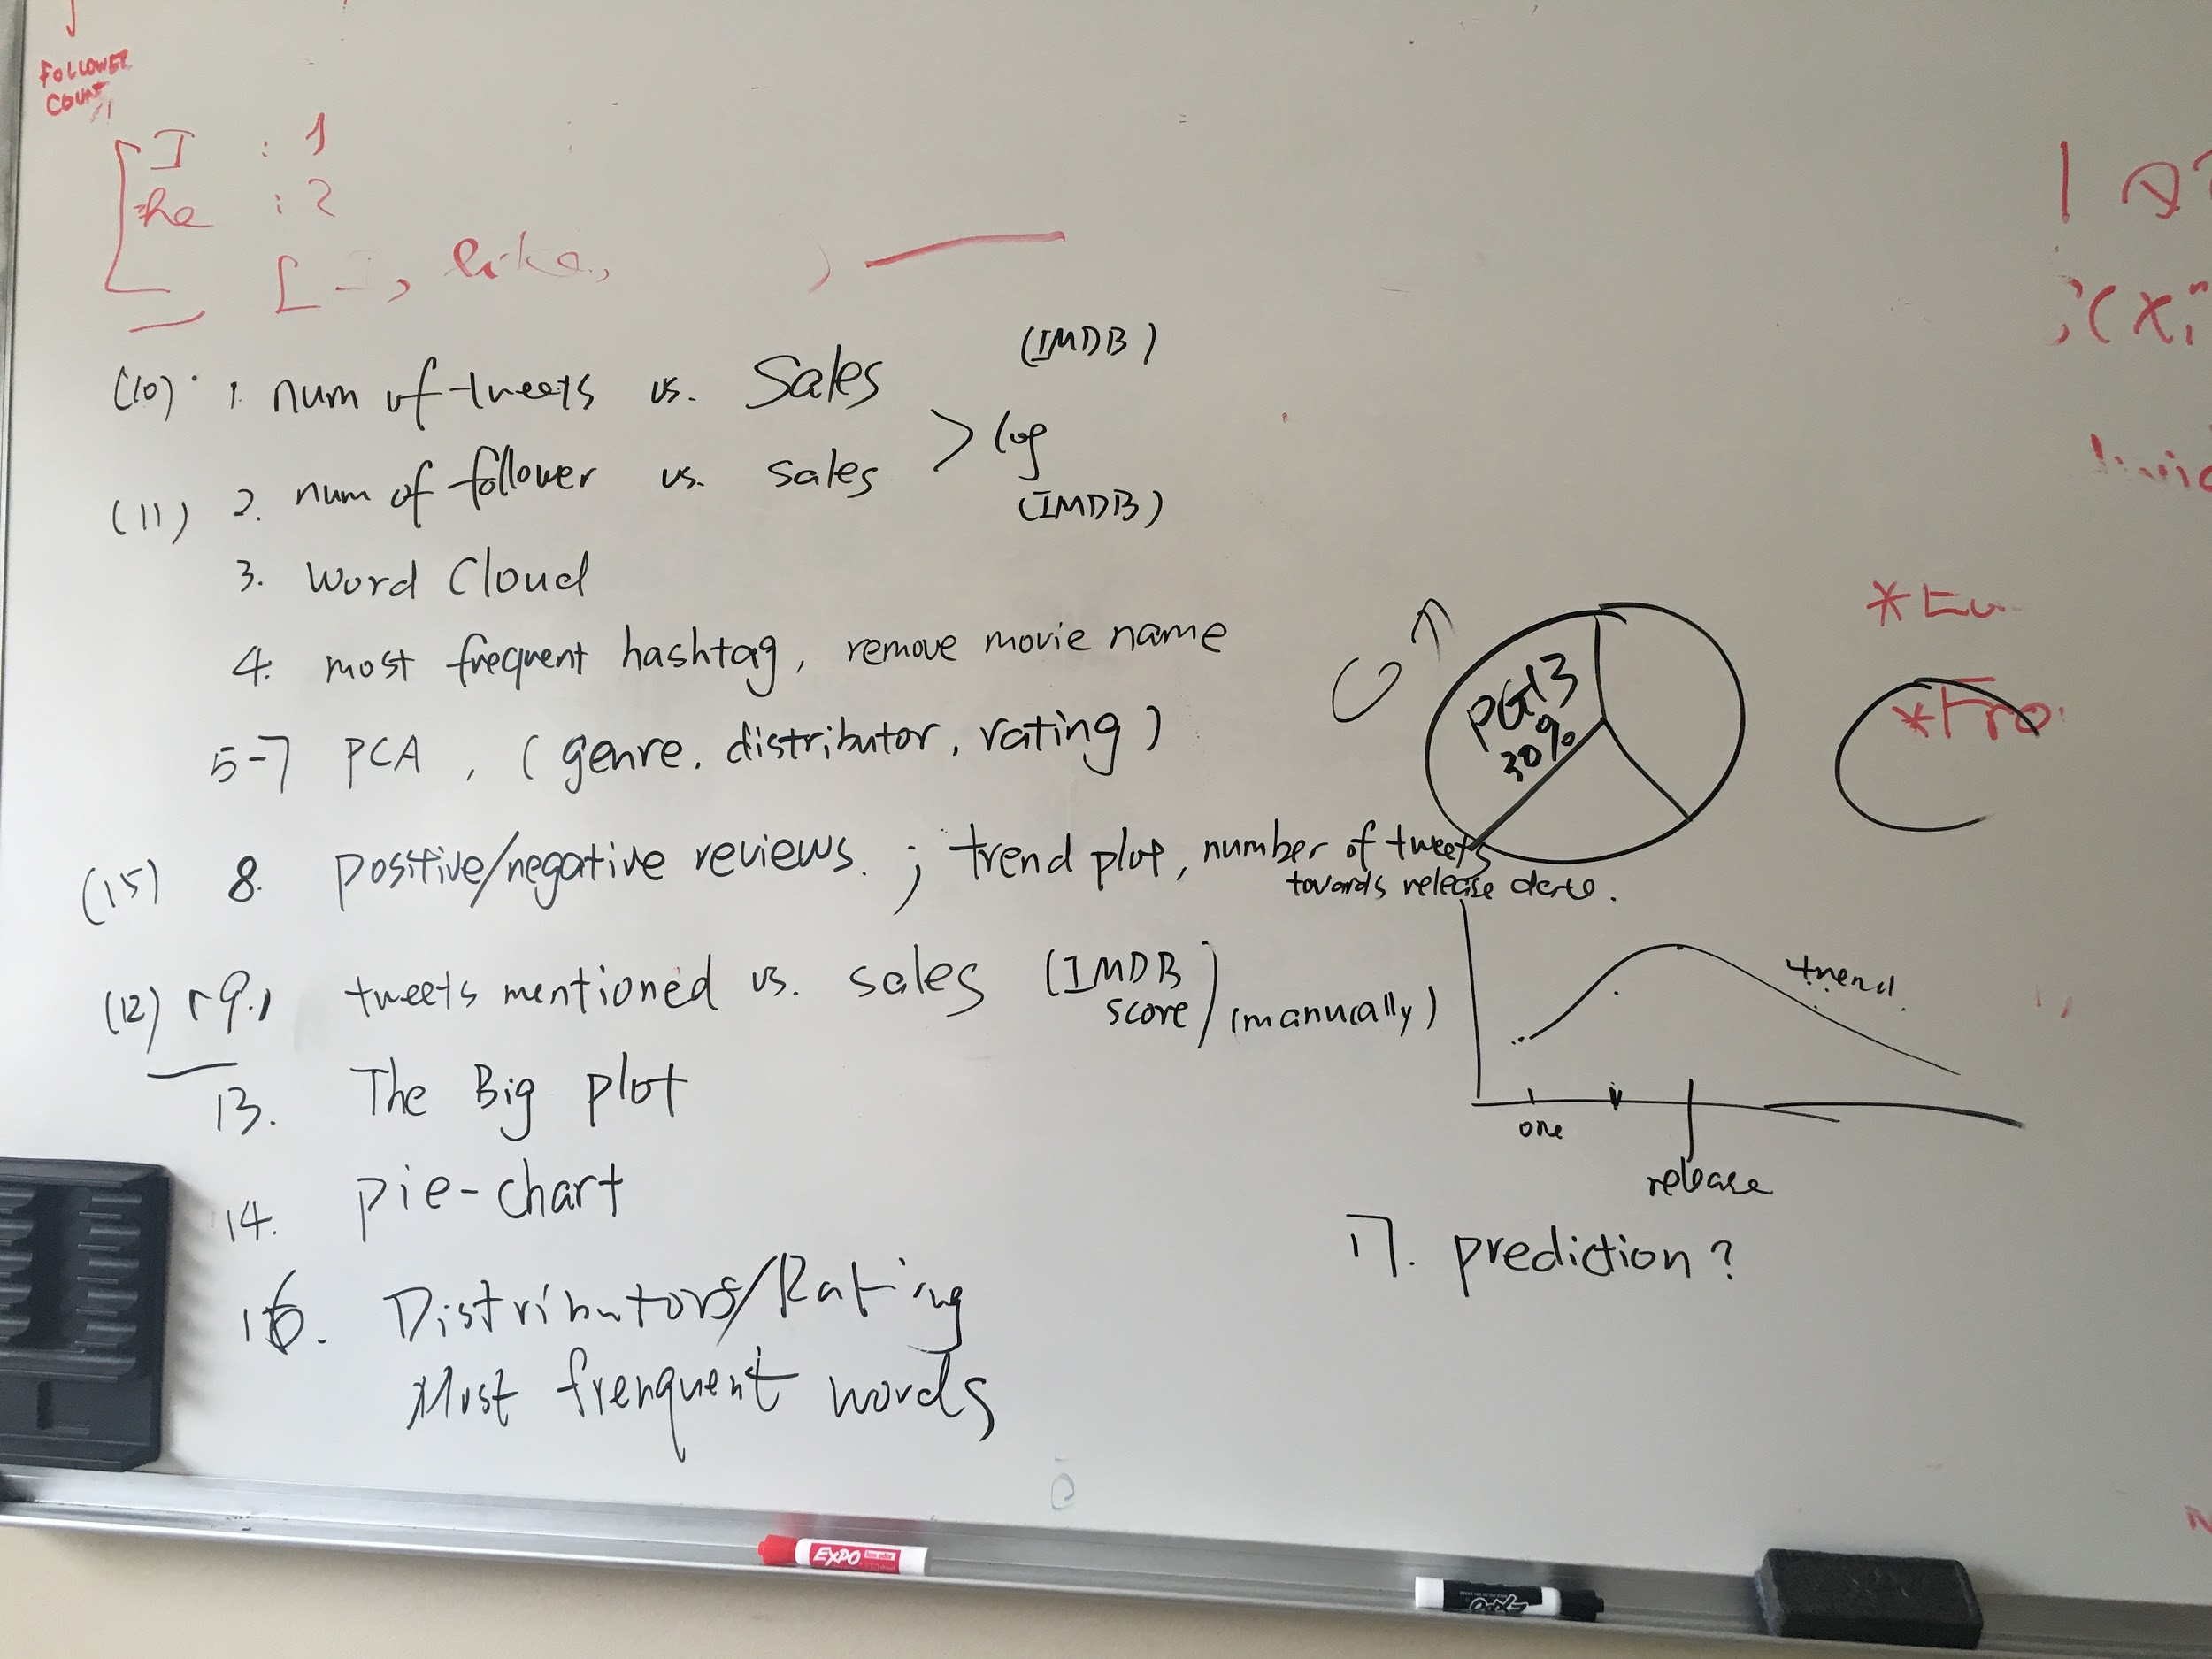 FOLLOWER
COUNT
I : 1
he : 2
like,
(10) 1. num of tweets vs. Sales (IMDB)
> log
(11) 2. num of follower vs. sales (IMDB)
3. Word Cloud
4. most frequent hashtag, remove movie name
5-7 PCA, (genre, distributor, rating)
PG13
30%
(15) 8. positive/negative reviews. ; trend plot, number of tweets
towards release date.
(12) 9. tweets mentioned vs. sales (IMDB score) (manually)
trend
one
release
13. The Big plot
14. pie-chart
16. Distributors/Rating
Most frenquent words
17. prediction?
*Fro
EXPO
low odor